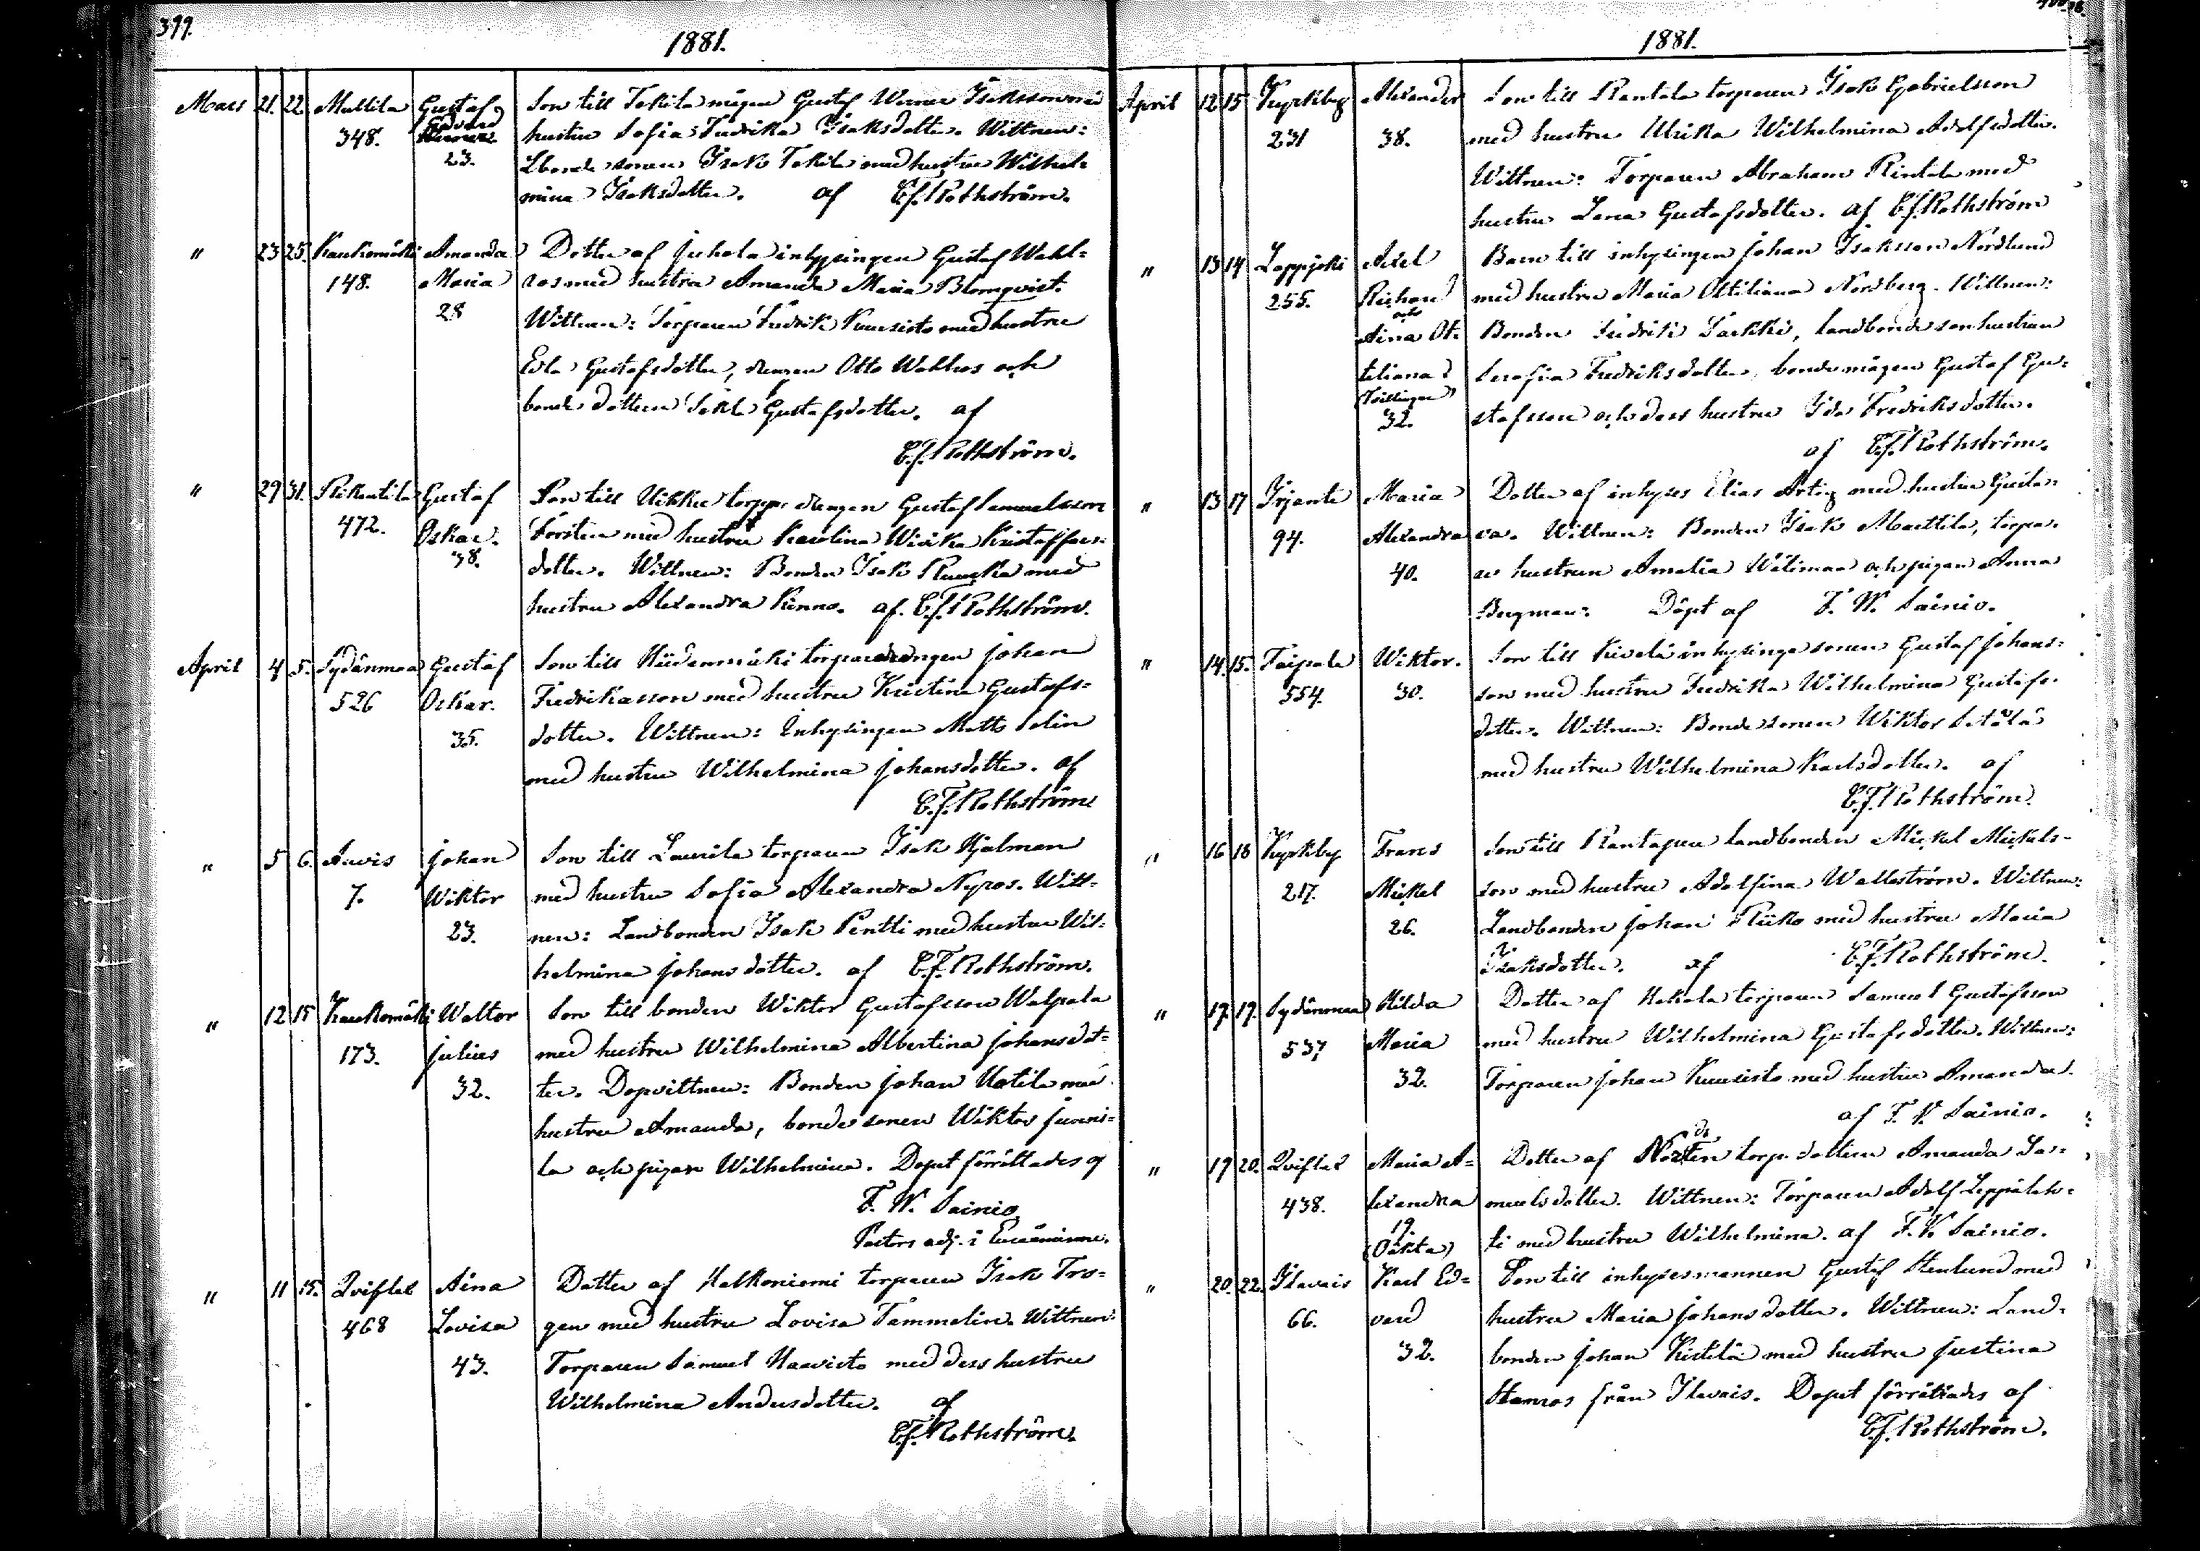 399.
1881.
Mars 21. 22. Mattila Gustaf Son till Tokila mågen Gustaf Werner Isaksson med
348. Edvard hustru Sofia Fredrika Isaksdotter. Wittnen:
23. Lbonde sonen Isak Tokila med hustru Wilhel-
mina Isaksdotter. af C.f. Rothström.
" 23 25. Kaukomäki Amanda Dotter af Juhola inhysingen Gustaf Wahl-
148. Maria ros med hustru Amanda Maria Blomqvist.
28 Wittnen: Torparen Fredrik Kuusisto med hustru
Edla Gustafsdotter, drengen Otto Wahlros och
bonde dottern Tekla Gustafsdotter. af
C.f. Rothström.
" 29 31. Gustaf Son till torpare drengen Gustaf Samuelsson
472. Oskar. med hustru Karolina Wivika Kristoffers-
38. dotter. Wittnen: Bonden Isak med
hustru Alexandra af. C.f. Rothström.
April 4 5. Sydänmaa Gustaf Son till Hiidenmäki torparedrengen Johan
526 Oskar. Fredriksson med hustru Kristina Gustafs-
35. dotter. Wittnen: Inhysingen Matts Selin
med hustru Wilhelmina Johansdotter. af
C.F. Rothström
" 5 6. Auvis Johan Son till Laurila torparen Isak Hjalman
7. Wiktor med hustru Sofia Alexandra Nyros. Witt-
23. nen: Landbonden Isak Pentti med hustru Wil-
helmina Johansdotter. af C.F. Rothström.
" 12 15 Kaukomäki Waltor Son till bonden Wiktor Gustafsson Walpala
173. Julius med hustru Wilhelmina Albertina Johansdot-
32. ter. Dopvittnen: Bonden Johan Uotila med
hustru Amanda, bondesonen Wiktor Juoni-
la och pigan Wilhelmina. Dopet förrättades af
F. W. Sainio
Pastors adj. i
" 11 15. Qviflaks Aina Dotter af Halkoniemi torparen Isak Tro-
468 Lovisa gen med hustru Lovisa Tammelin. Wittnen:
43. Torparen Samuel Haavisto med dess hustru
Wilhelmina Andersdotter. af
C.f. Rothström.
1881.
April 12 15 Kyrkby Alexander Son till Rantala torparen Isak Gabrielsson
231 38. med hustru Ulrika Wilhelmina Adolfsdotter.
Wittnen: Torparen Abraham Rintala med
hustru Lena Gustafsdotter. af C.f. Rothström
" 13 14 Lappijoki Axel Barn till inhysingen Johan Isaksson Nordlund
255. Richard med hustru Maria Ottiliana Nordberg. Wittnen:
och
Aina Ot- Bonden Fredrik Sarkki, landbonde son hustrun
tiliana Serafia Fredriksdotter, bonde mågen Gustaf Gu-
(Tvillingar)
32. stafsson och dess hustru Ida Fredriksdotter.
af C.f. Rothström.
" 13 17 Irjante Maria Dotter af inhyses Elias Artig med hustru Gusta-
94. Alexandra va. Wittnen: Bonden Isak Marttila, torpa-
40. re hustrun Amalia Wälimaa och pigan Anna
Bergman: Döpt af F. W. Sainio.
" 14. 15. Taipale Wiktor. Son till Kivelä inhysinge sonen Gustaf Johans-
554. 30. son med hustru Fredrika Wilhelmina Gustafs-
dotter. Wittnen: Bonde sonen Wiktor
med hustru Wilhelmina Karlsdotter. af
C.F. Rothström.
" 16 18 Kyrkby Frans Son till landbonden Mickel Mickels-
217. Mickel son med hustru Adolfina Wallström. Wittnen:
26. Landbonden Johan med hustru Maria
Isaksdotter. af C.F. Rothström.
" 17. 17. Sydänmaa Hilda Dotter af Hakala torparen Samuel Gustafsson
537 Maria med hustru Wilhelmina Gustafsdotter. Wittnen:
32. Torparen Johan Kuusisto med hustru Amanda.
af F. V. Sainio.
" 19 20. Qviflaks Maria A- Dotter af torpe dottern Amanda Sa-
438. lexandra muelsdotter. Wittnen: Torparen Adolf Leppälah-
19.
(Oäkta) ti med hustru Wilhelmina. af F. V. Sainio.
" 20. 22. Ilavais Karl Ed- Son till inhysesmannen Gustaf Stenlund med
66. vard hustru Maria Johansdotter. Wittnen: Land-
32. bonden Johan Kistilä med hustru Justina
Stamros från Ilavais. Dopet förrättades af
C.f. Rothström.